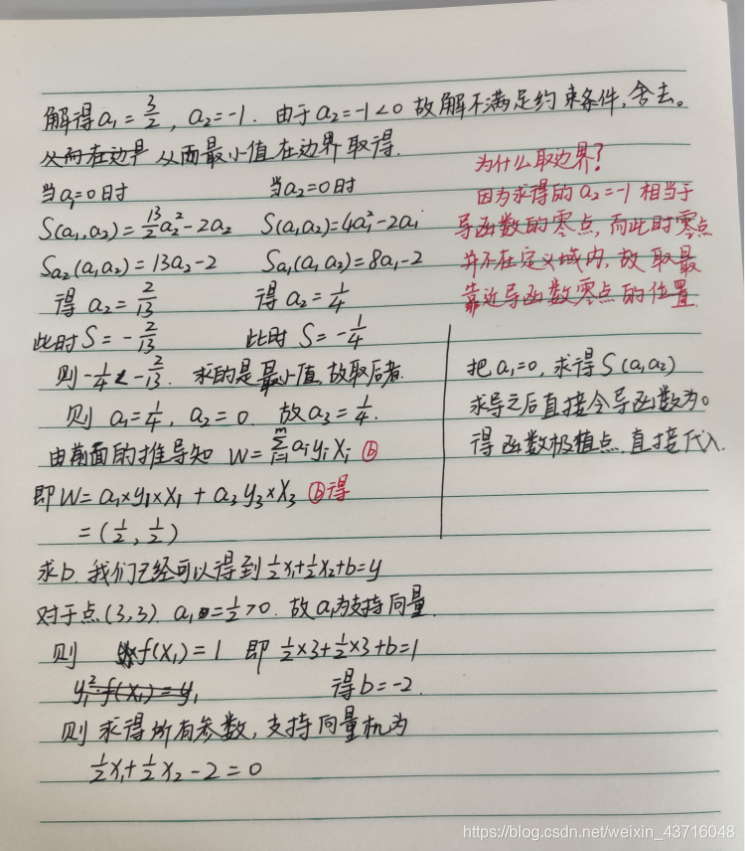 解得a₁=3/2, a₂=-1. 由于a₂=-1<0 故解不满足约束条件,舍去。
从而在边界 从而最小值在边界取得.
当a₁=0时
S(a₁,a₂)=13/2a₂²-2a₂
Sa₂(a₁,a₂)=13a₂-2
得 a₂=2/13
此时S=-2/13
当a₂=0时
S(a₁,a₂)=4a₁²-2a₁
Sa₁(a₁,a₂)=8a₁-2
得a₂=1/4
此时 S=-1/4
为什么取边界?
因为求得的a₂=-1相当于
导函数的零点,而此时零点
并不在定义域内,故取最
靠近导函数零点的位置.
则-1/4<-2/13. 求的是最小值,故取后者.
则 a₁=1/4, a₂=0. 故a₃=1/4.
由前面的推导知 W=∑ᵢ₌₁ᵐaᵢyᵢXᵢ ⓑ
即W=a₁×y₁×X₁+a₃y₃×X₃ ⓑ得
=(1/2,1/2)
把a₁=0,求得S(a₁,a₂)
求导之后直接令导函数为0
得函数极值点.直接代入.
求b. 我们已经可以得到1/2x₁+1/2x₂+b=y
对于点(3,3). a₁=1/2>0. 故a₁为支持向量.
则 f(X₁)=1 即 1/2×3+1/2×3+b=1
y₁²·f(X₁)=y₁ 得b=-2.
则求得所有参数,支持向量机为
1/2x₁+1/2x₂-2=0
https://blog.csdn.net/weixin_43716048